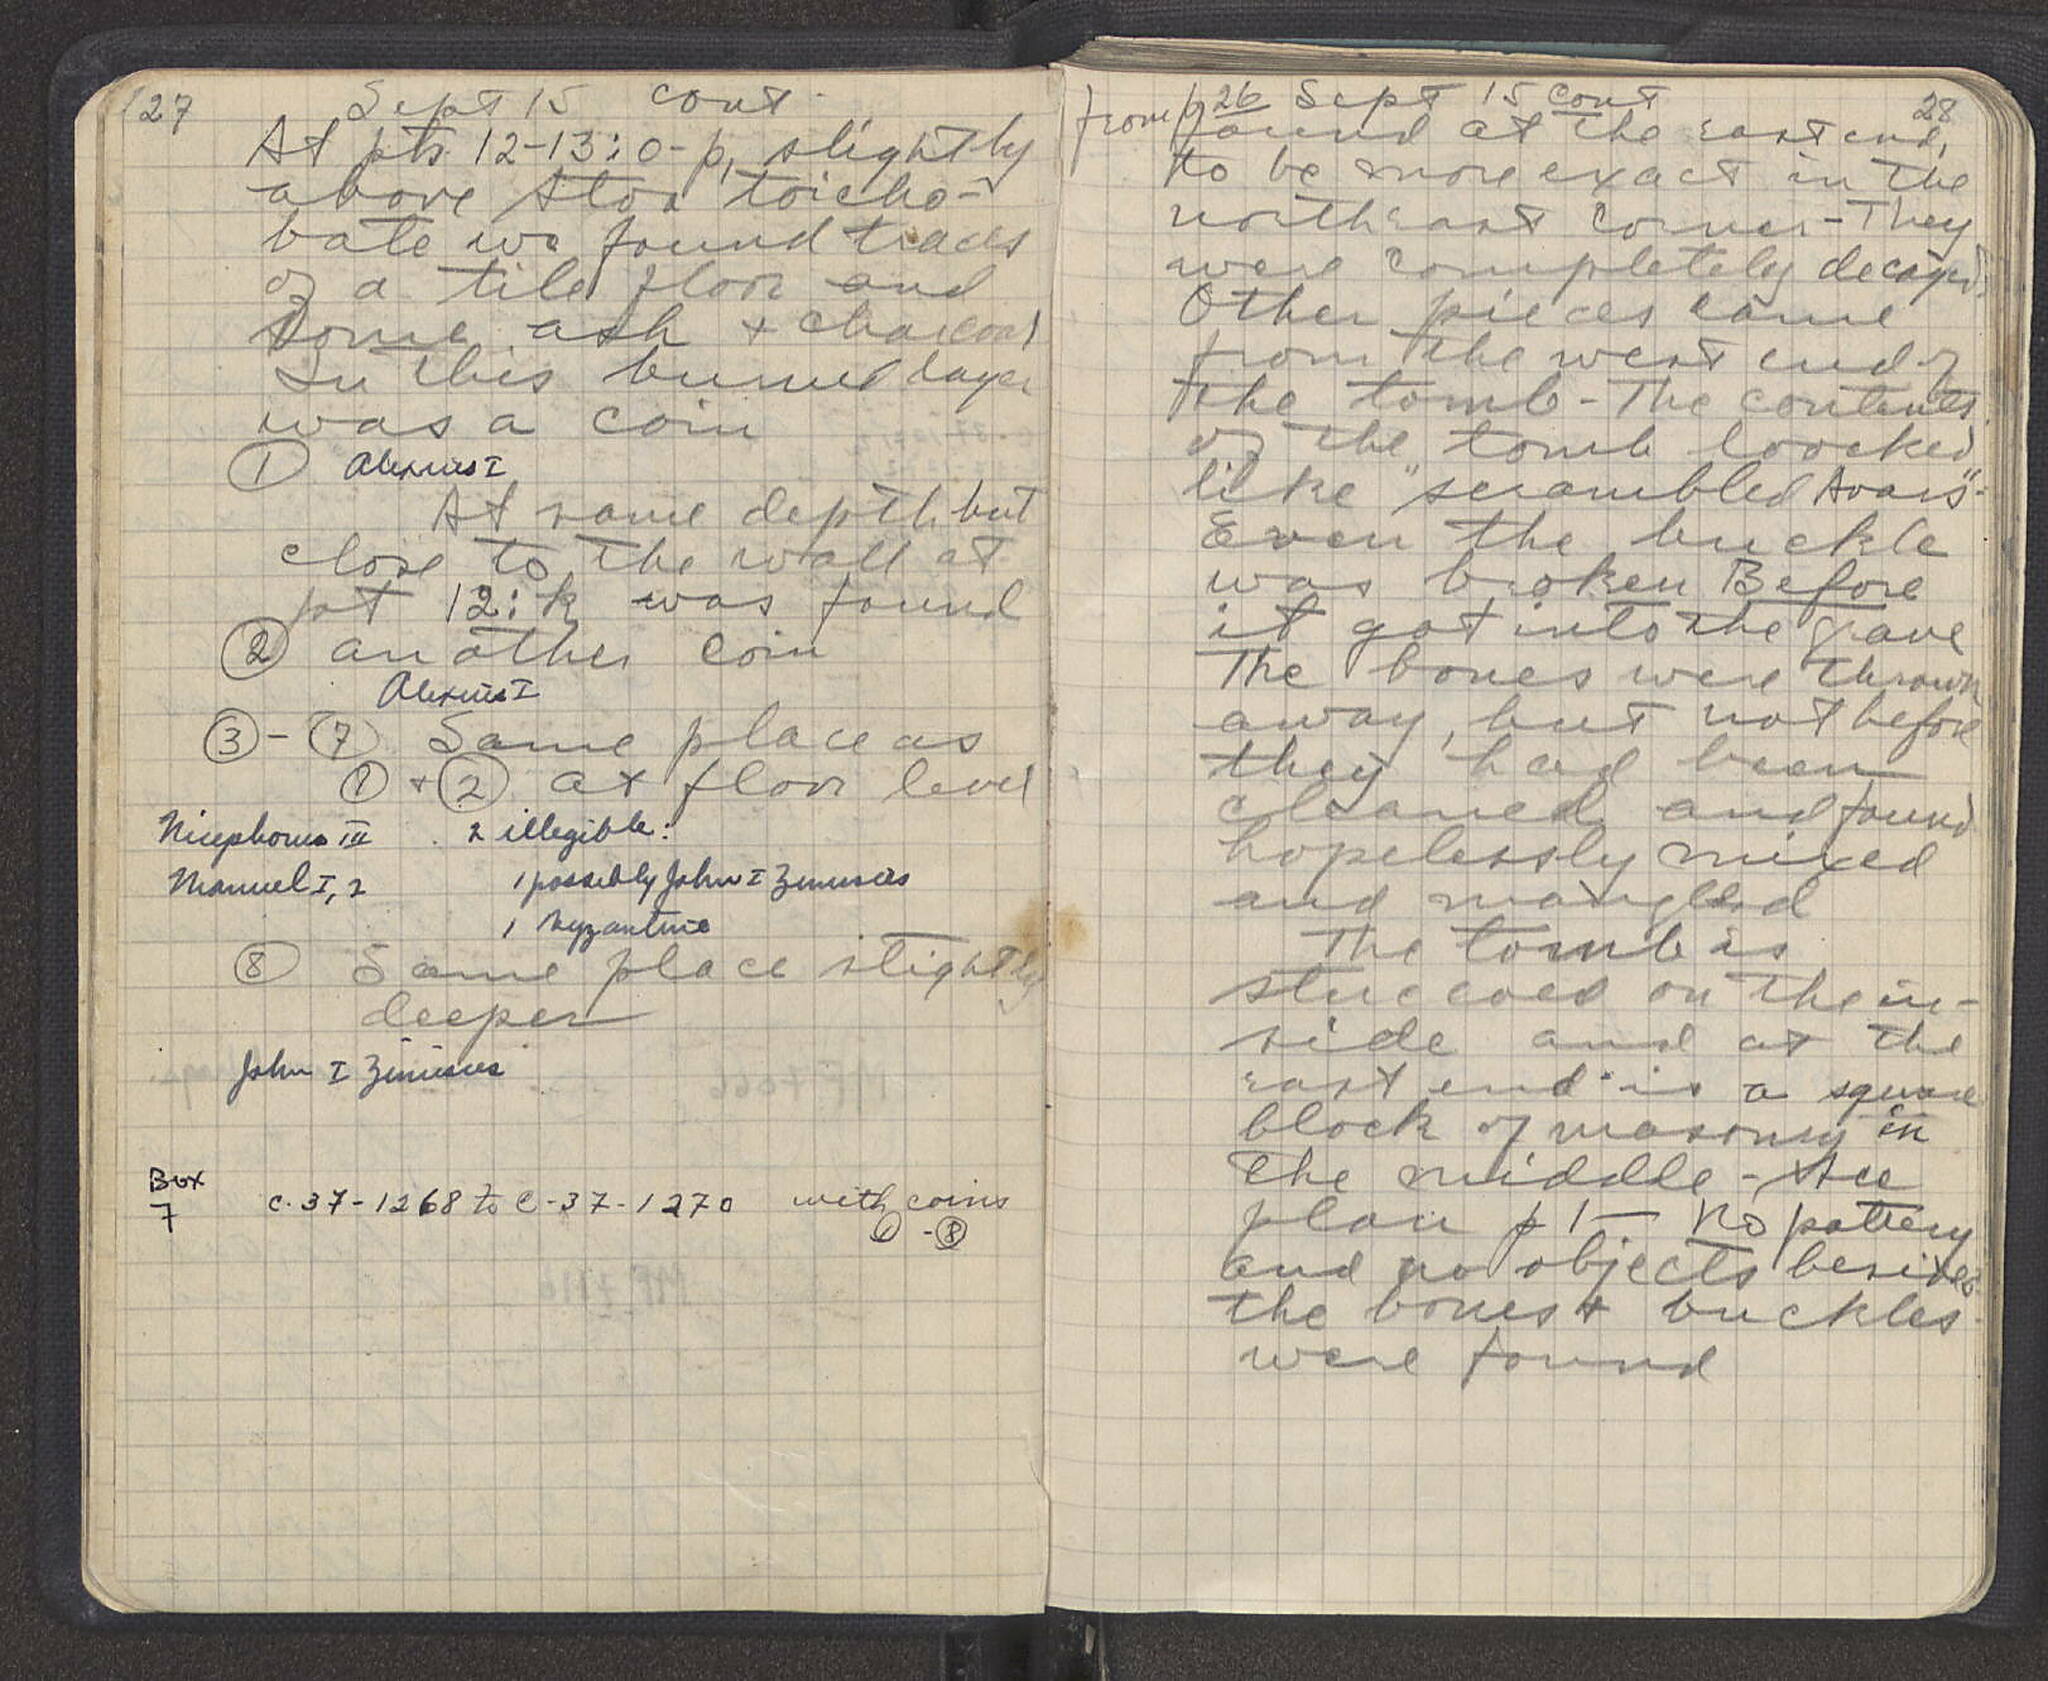 27 Sept 15 cont.
At pts. 12-13:o-p, slightly
above Stoa toicho-
bate we found traces
of a tile floor and
some ash + charcoal
In this burned layer
was a coin
① Alexius I
At same depth but
close to the wall at
pt 12:k was found
② another coin
Alexius I
③-⑦ Same place as
① + ② at floor level
Nicephorus III . 2 illegible:
Manuel I, 2 1 possibly John I Zimisces
1 Byzantine
⑧ Same place slightly
deeper
John I Zimisces
Box
7 C-37-1268 to C-37-1270 with coins
① - ⑧
from p 26 Sept 15 cont 28
found at the east end,
to be more exact in the
northeast corner - They
were completely decayed.
Other pieces came
from the west end of
the tomb - The contents
of the tomb loocked
like "scrambled Avars".
Even the buckle
was broken Before
it got into the grave
The bones were thrown
away, but not before
they had been
cleaned and found
hopelessly mixed
and mangled
The tomb is
stuccoed on the in-
side and at the
east end is a square
block of masonry in
the middle - See
plan p 1 - No pottery
and no objects besides
the bones + buckles
were found